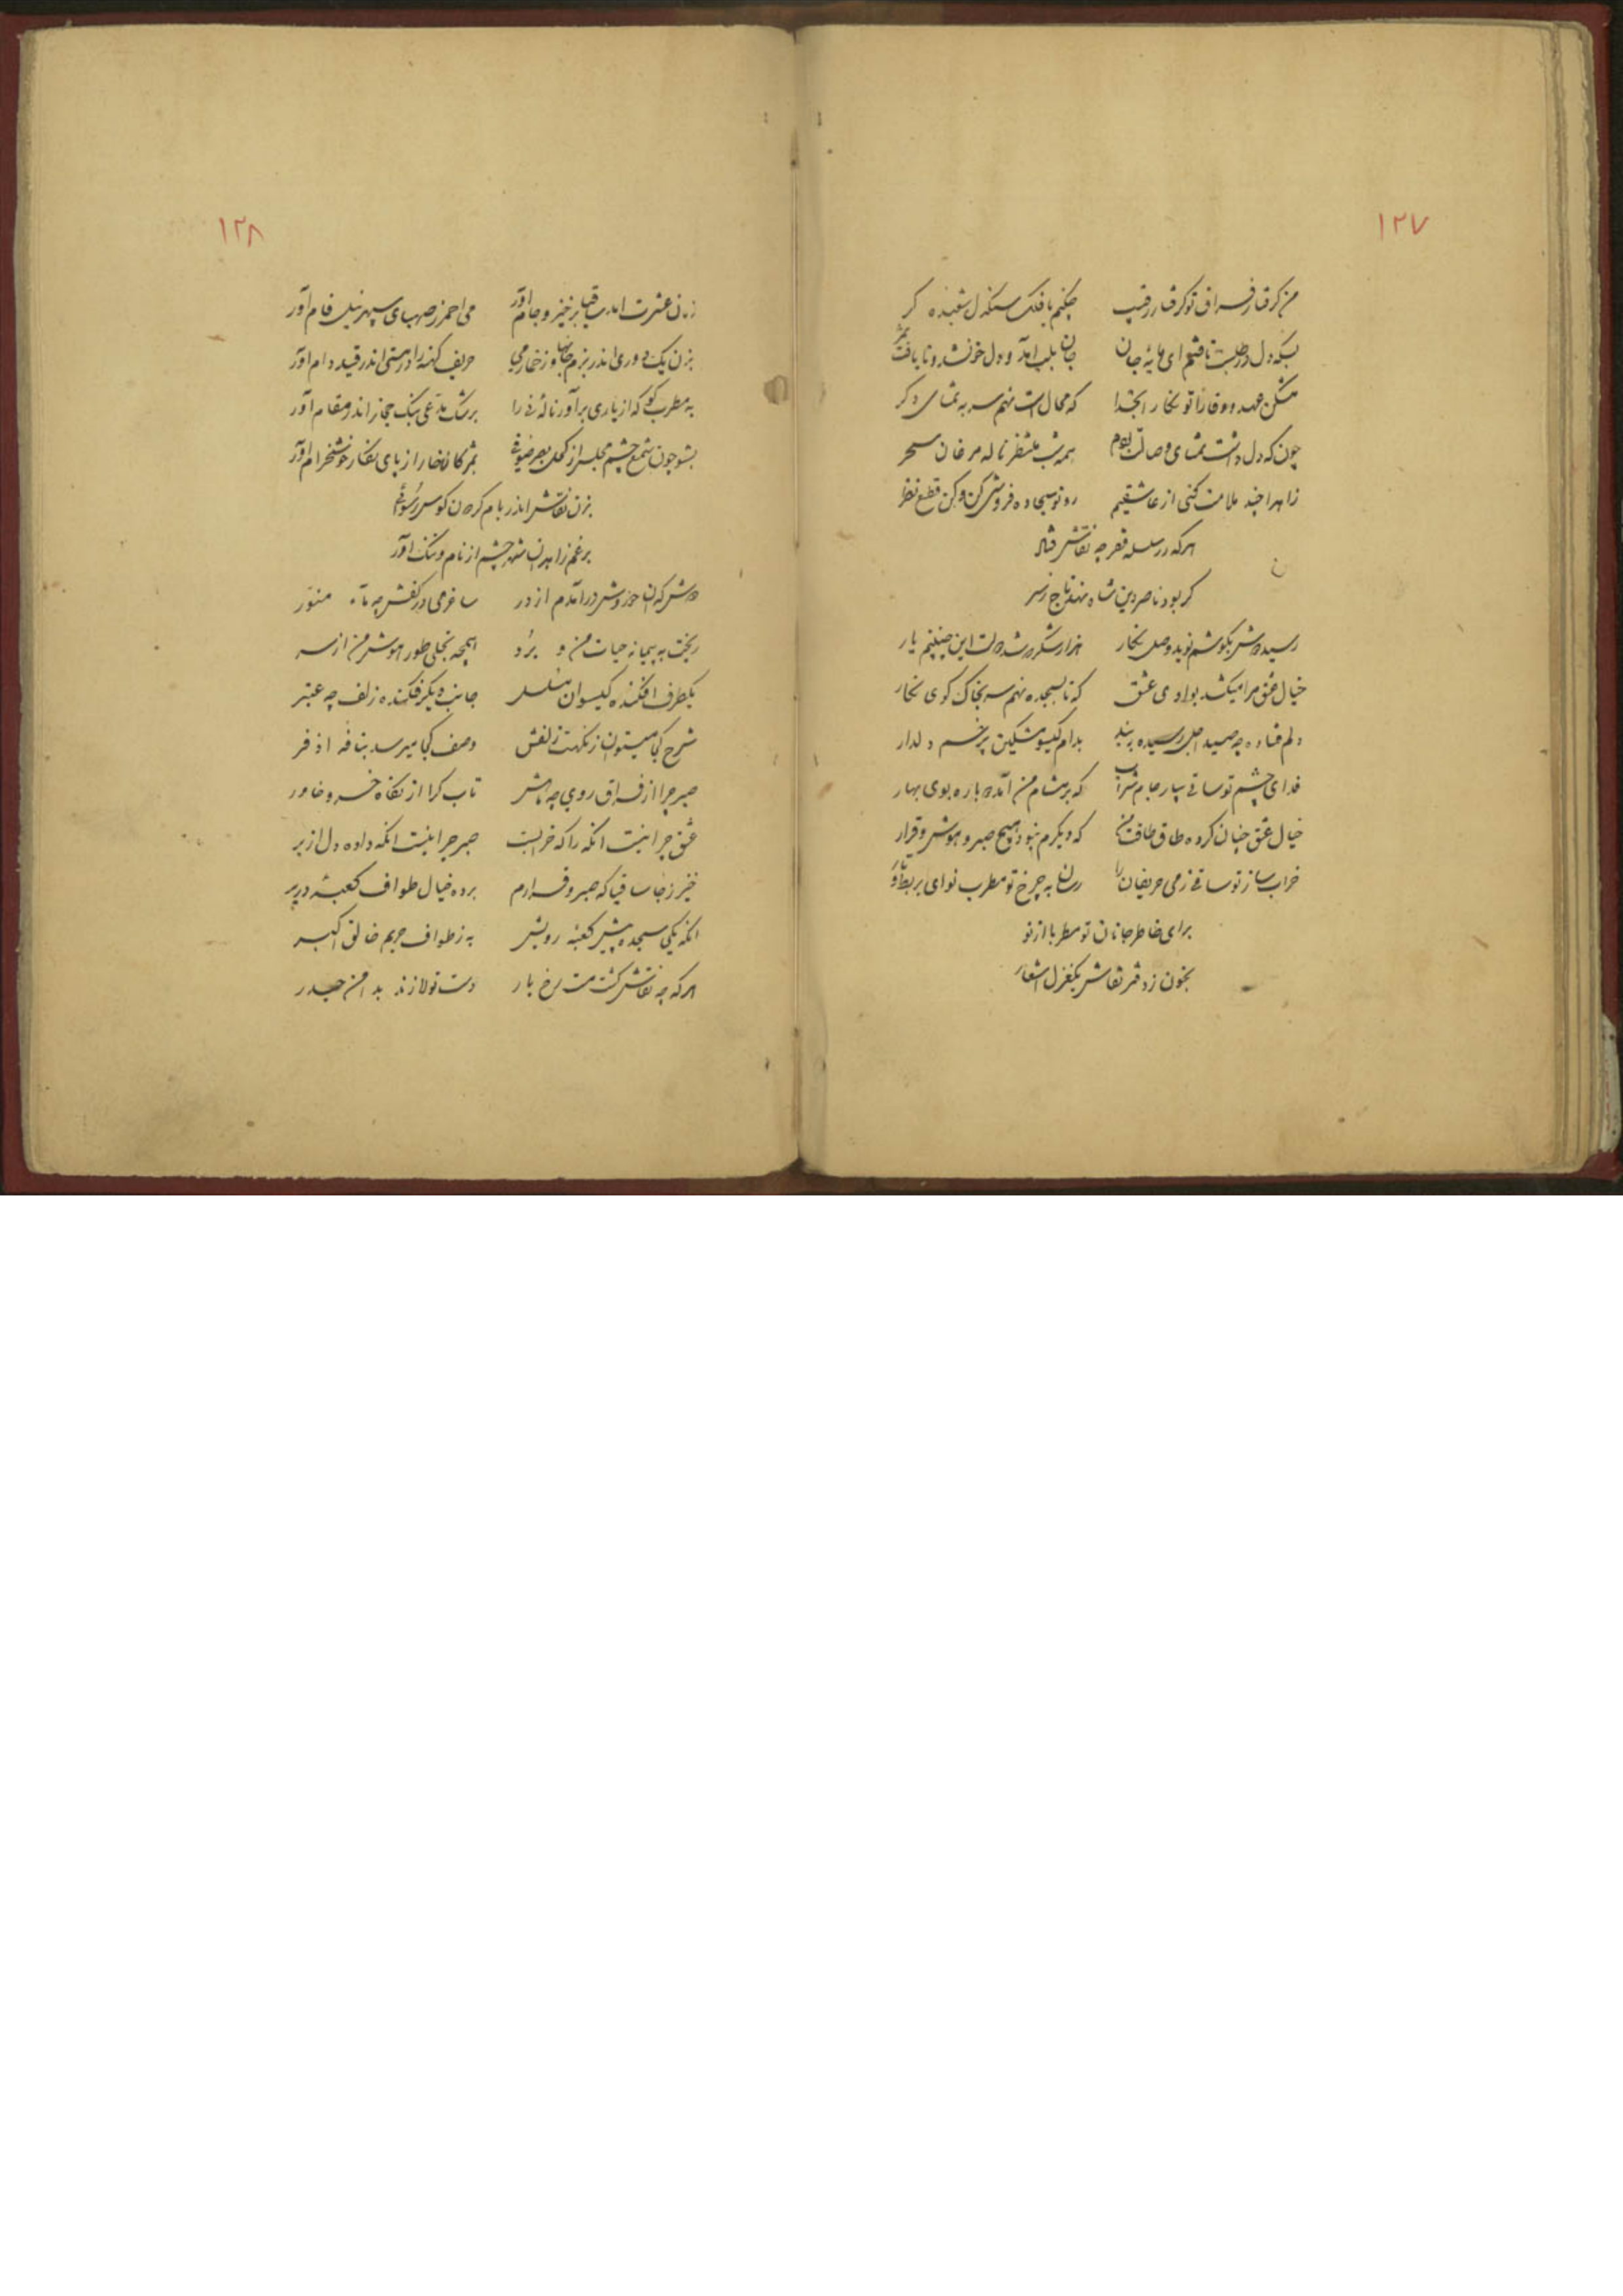 ۱۲۷
من گرفتار فراق تو گرفتار رقیب چکنم با فلک سنگدل شعبده گر
بسکه دل در طلبت تافتم ای مایه جان جان بلب آمد و دل خون شد و نایافت ثمر
مشکن عهد و وفا را تو نگارا بخدا که محال است نهم سر به تمنای دگر
چون که دل داشت تمنای وصالت بودم همه شب منتظر ناله مرغان سحر
زاهدا چند ملامت کنی از عاشقیم رو تو سجاده فروشی کن و کن قطع نظر
هر که در سلسله فقر چه نقاش فتاد
گر بود ناصر دین شاه نهد تاج ز سر
رسید دوش بگوشم نوید وصل نگار هزار شکر که شد دولت این چنینم یار
خیال عشق مرا میکشد بوادی عشق که تا بسجده نهم سر بخاک کوی نگار
دلم فتاده چه صید اجل رسیده به بند بدام گیسو مشکین پر خم دلدار
فدای چشم تو ساقی بیار جام شراب که بر مشام من آمد دوباره بوی بهار
خیال عشق چنان کرده طاق طاقت من که دیگرم نبود هیچ صبر و هوش و قرار
خراب ساز تو ساقی ز می حریفان را رسان به چرخ تو مطرب نوای بربط و تار
برای خاطر جانان تو مطربا از نو
بخوان ز دفتر نقاش یکغزل اشعار
۱۲۸
زمان عشرت آمد ساقیا برخیز و جام آور می احمر ز صهبای سپهر نیل فام آور
بزن یک دوری اندر بزم جانها وز خمار می حریف کهنه را در مستی اندر قید دام آور
به مطرب گو که از یاری برآور ناله نی را برشک مدعی بنگ حجاز اندر مقام آور
بشو چون شمع چشم مجلس از کحل بصر ضوئی بمژگان خار را از پای نگار خوشخرام آور
بزن نقاش اندر بام گردون کوس رسوائی
برغم زاهدان شهر چشم از نام و ننگ آور
دوش که آن حوروش درآمدم از در ساغر می در کفش چه ماه منور
ریخت به پیمانه حیات من و برد همچه تجلی طور هوش من از سر
یکطرف افکنده گیسوان مسلسل جانب دیگر فکنده زلف چه عنبر
شرح کجا میتوان ز نکهت زلفش وصف کجا میرسد بنافه اذفر
صبر چرا از فراق روی چه ماهش تاب کرا از نگاه خسرو خاور
عشق چرا نیست آنکه را که خرابست صبر چرا نیست آنکه داده دل از بر
خیز ز جا ساقیا که صبر و قرارم برده خیال طواف کعبه دربر
آنکه یکی سجده پیش کعبه رویش به ز طواف حریم خالق اکبر
هر که چه نقاش گشت مست رخ یار دست تولا زند بدامن حیدر